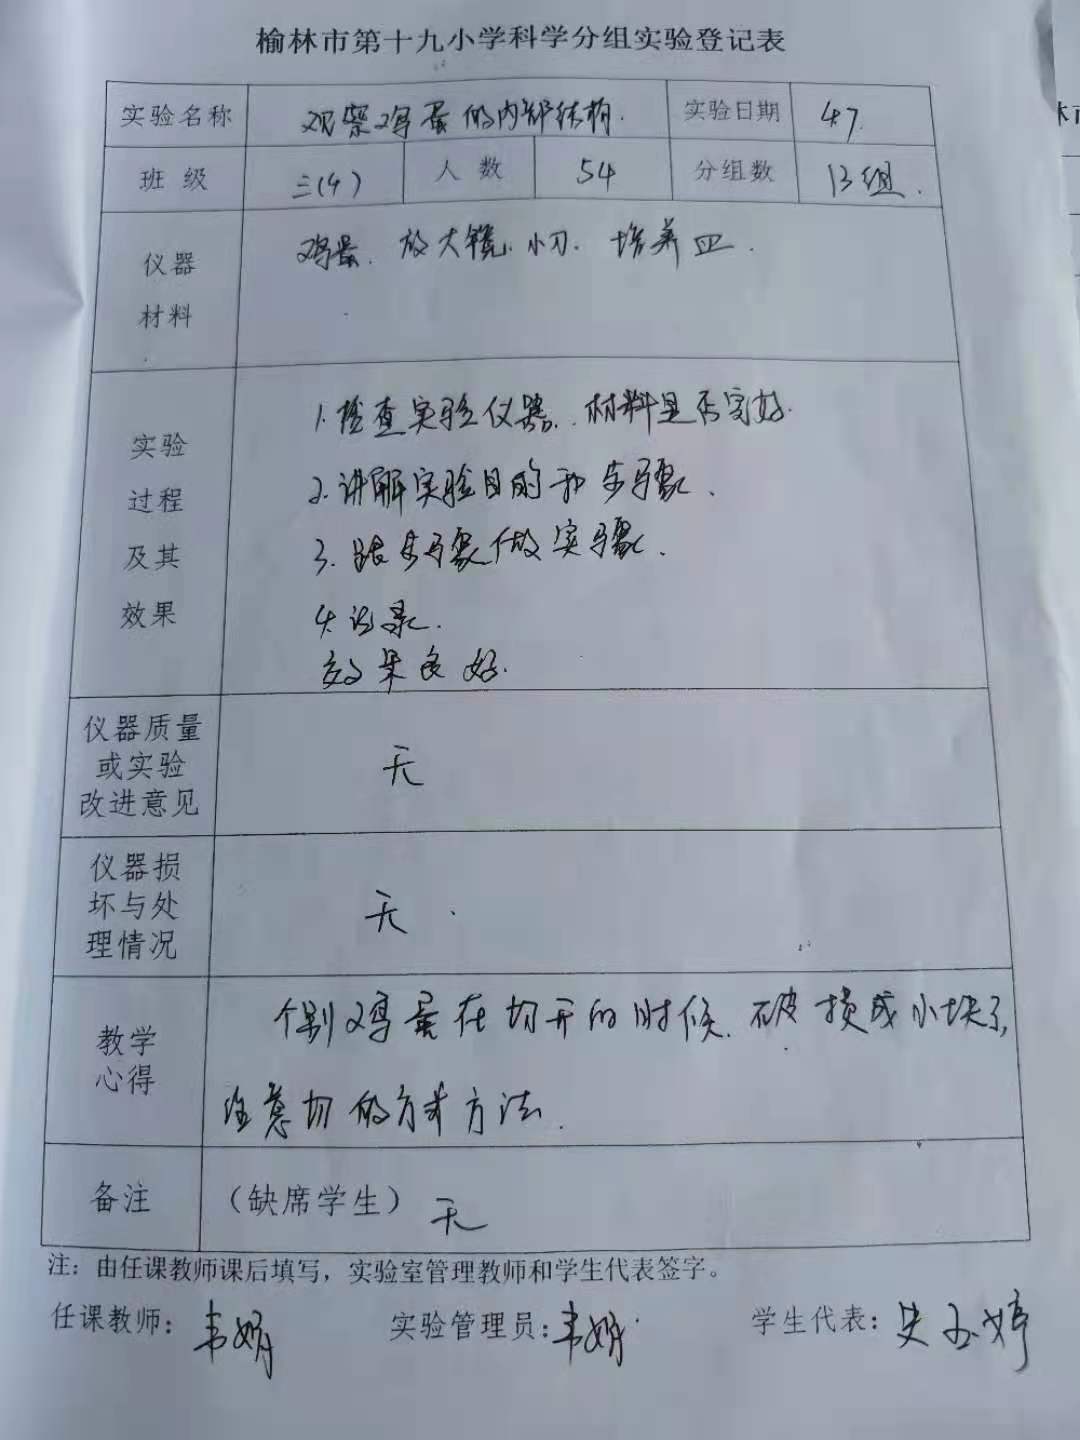 榆林市第十九小学科学分组实验登记表
实验名称 观察鸡蛋的内部结构. 实验日期 4.7
班 级 三(4) 人 数 54 分组数 13组.
仪器
材料
鸡蛋. 放大镜. 小刀. 培养皿.
实验
过程
及其
效果
1.检查实验仪器. 材料是否完好.
2.讲解实验目的和步骤.
3.跟步骤做实骤.
4.记录.
效果良好.
仪器质量
或实验
改进意见
无
仪器损
坏与处
理情况
无.
教学
心得
个别鸡蛋在切开的时候.破损成小块了,
注意切的方法.
备注 (缺席学生) 无
注：由任课教师课后填写，实验室管理教师和学生代表签字。
任课教师：韦娟 实验管理员：韦娟 学生代表：史玉婷